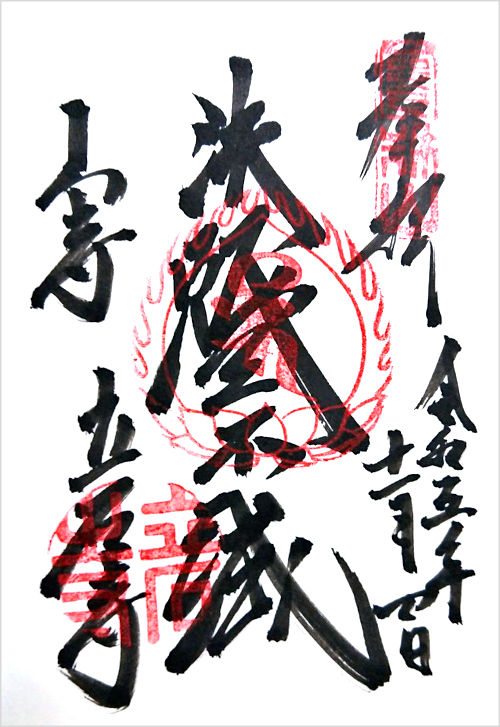 奉拝
令和五年
十一月四日
法燈不滅
山寺
立石寺